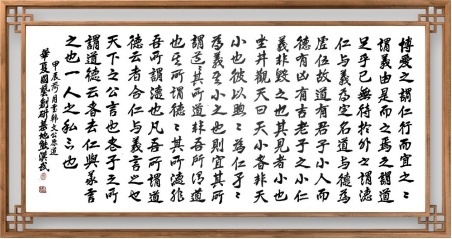 博愛之謂仁行而宜之〻
謂義由是而之焉之謂道
足乎己無待於外之謂德
仁与義為定名道与德為
虛位故道有君子小人而
德有凶有吉老子之小仁
義非毀之也其見者小也
坐井觀天曰天小者非天
小也彼以煦〻為仁孑〻
為義其小之也則宜其所
謂道〻其所道非吾所謂道
也其所謂德〻其所德非
吾所謂德也凡吾所謂道
德云者合仁与義言之也
天下之公言也老子之所
謂道德云者去仁與義言
之也一人之私言也
甲辰荷月書韓文公原道
華夏國藝創研基地漢武